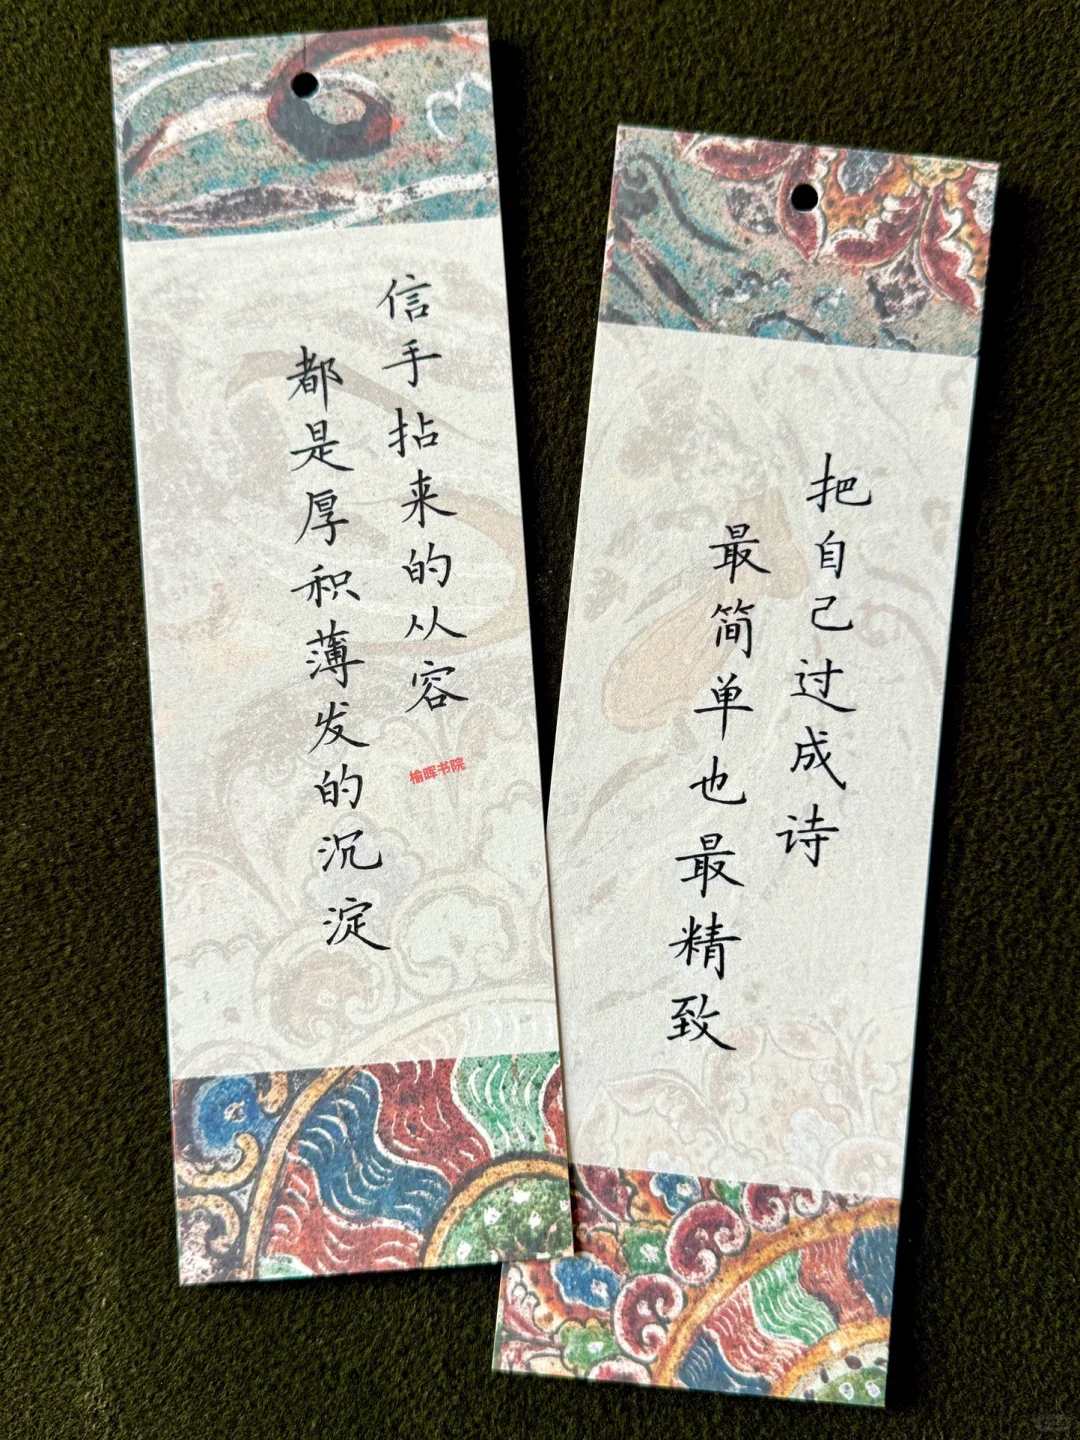 信手拈来的从容
都是厚积薄发的沉淀
榆晖书院
把自己过成诗
最简单也最精致